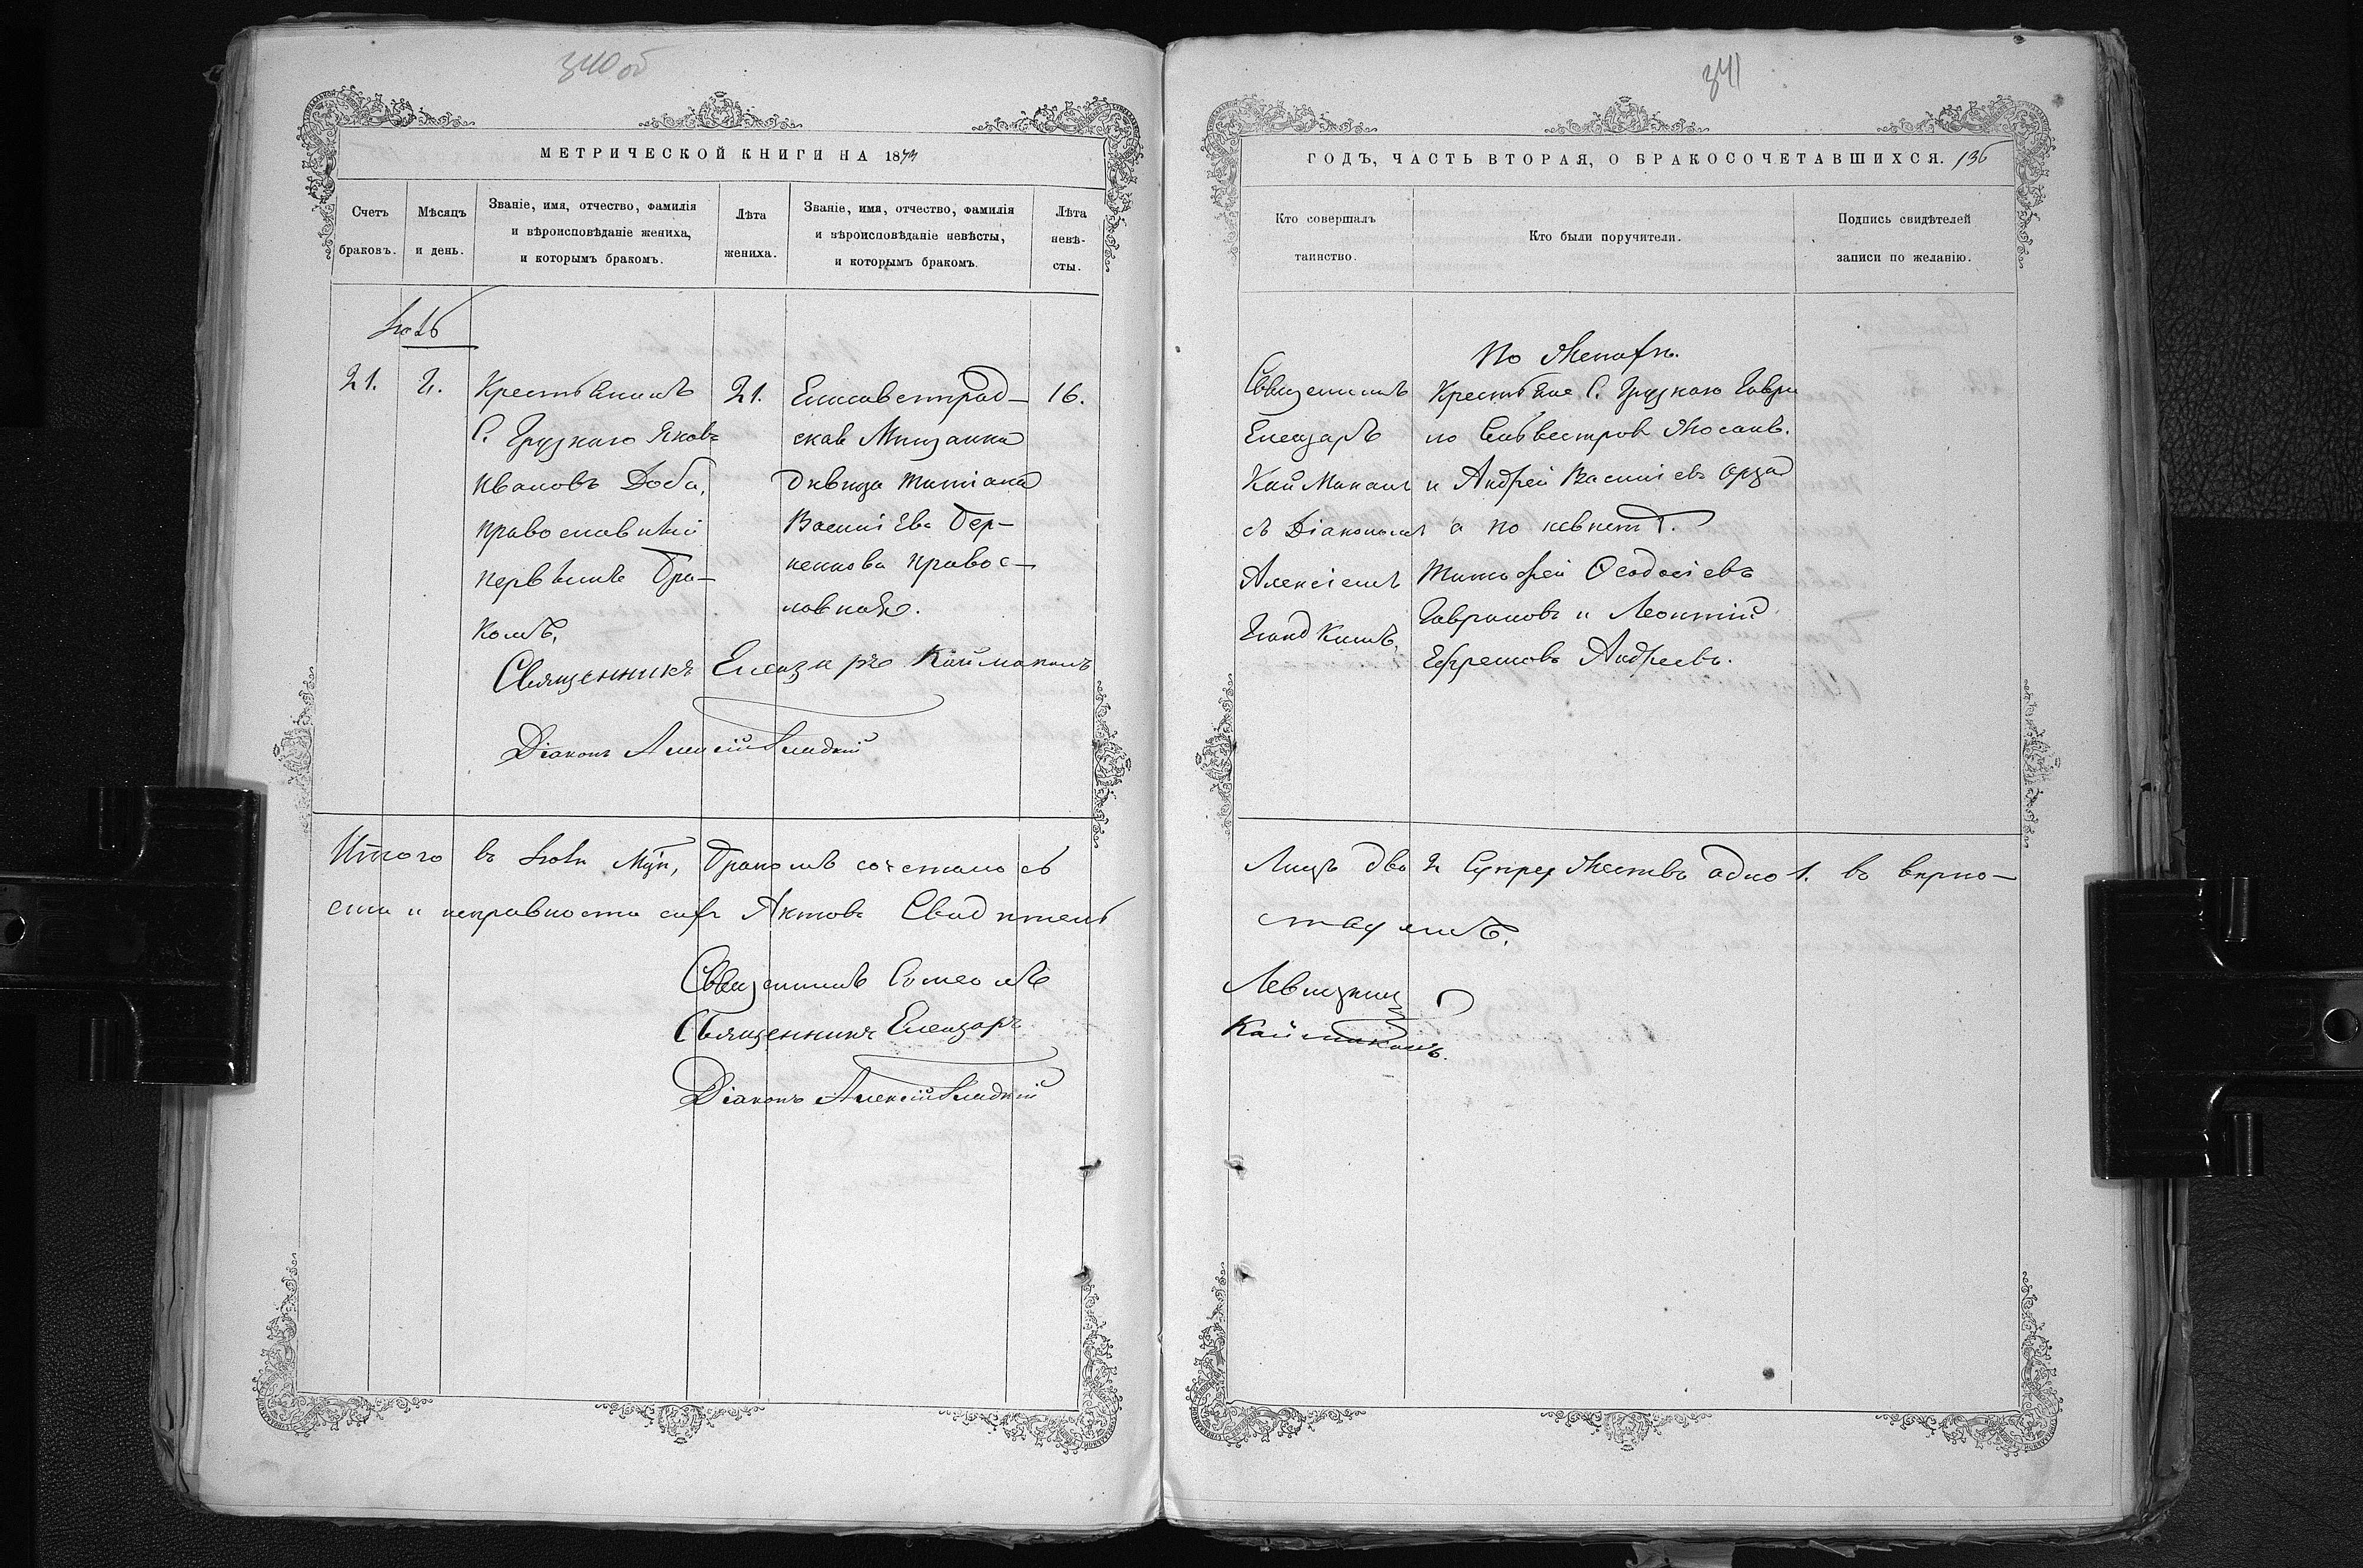 340 об
МЕТРИЧЕСКОЙ КНИГИ НА 1873
Счетъ браковъ.
Мѣсяцъ и день.
Званіе, имя, отчество, фамилія
и вѣроисповѣданіе жениха,
и которымъ бракомъ.
Лѣта жениха.
Званіе, имя, отчество, фамилія
и вѣроисповѣданіе невѣсты,
и которымъ бракомъ.
Лѣта невѣ-
сты.
Іюль
21.
2.
Крестьянинъ
С. Грузкаго Яковъ
Ивановъ Доба,
православный
первымъ бра-
комъ.
21.
Елисаветград-
ская Мѣщанка
дѣвица Татіана
Васильева Бер-
ненкова правос-
лавная.
16.
Священникъ Елеазаръ Каймананъ
Діаконъ Алексій Гладкій
Итого въ Іюлѣ М-цѣ, бракомъ сочеталось
сти и исправности сихъ Актовъ Свидѣтель
Священникъ Симеонъ
Священникъ Елеазаръ
Діаконъ Алексій Гладкій
341
ГОДЪ, ЧАСТЬ ВТОРАЯ, О БРАКОСОЧЕТАВШИХСЯ. 136
Кто совершалъ
таинство.
Кто были поручители.
Подпись свидѣтелей
записи по желанію.
Священникъ
Елеазаръ
Каймананъ
съ Діакономъ
Алексіемъ
Гладкимъ.
По Женихѣ.
Крестьяне С. Грузкаго Гаври
ло Сильвестровъ
и Андрей Васильевъ
а по невѣстѣ.
Тимофей Ѳеодосіевъ
Гавриловъ и Леонтій
Ефремовъ Андреевъ.
Лицъ два 2 Супружествъ одно 1. въ вѣрно-
ствуемъ.
Левицкій
Каймананъ.